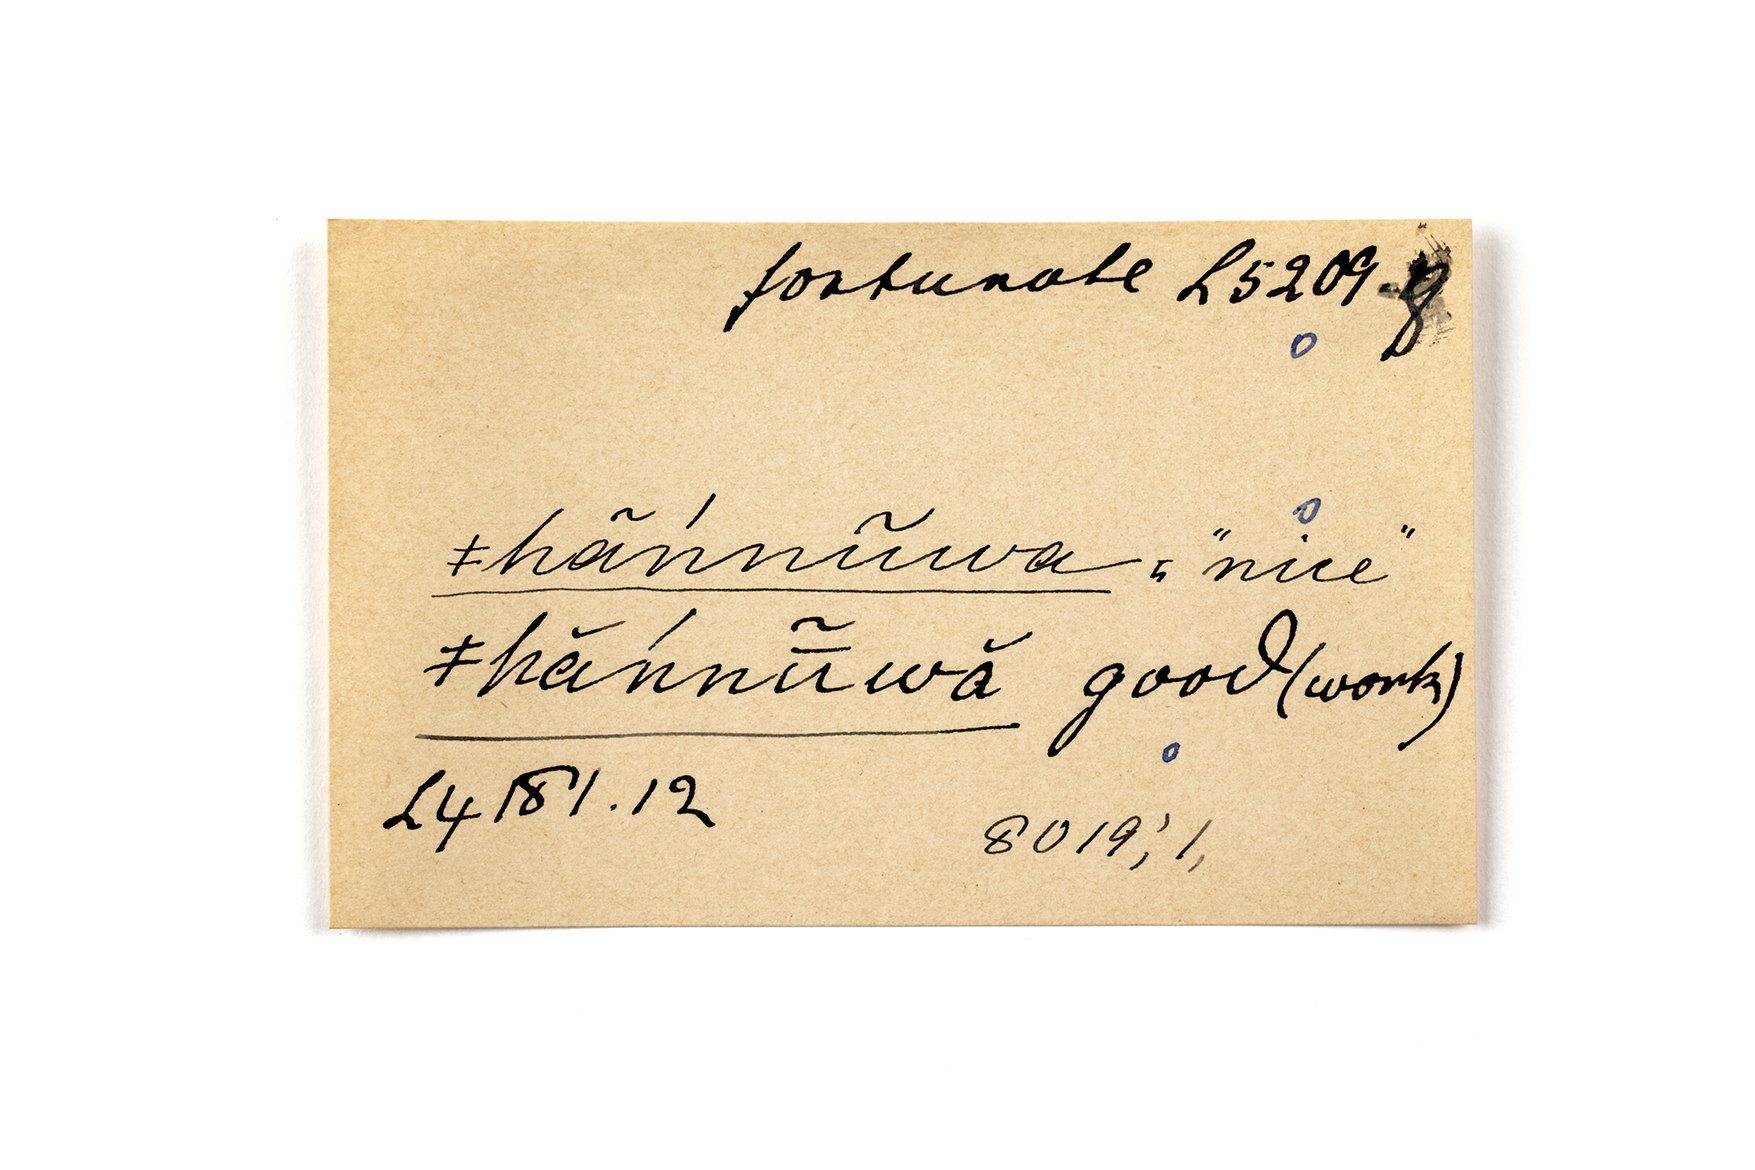 fortunate L5209.
ǂhã́nnũwa, "nice"
ǂhắnnũ̄wă good (work)
L4181.12
8019,'1,